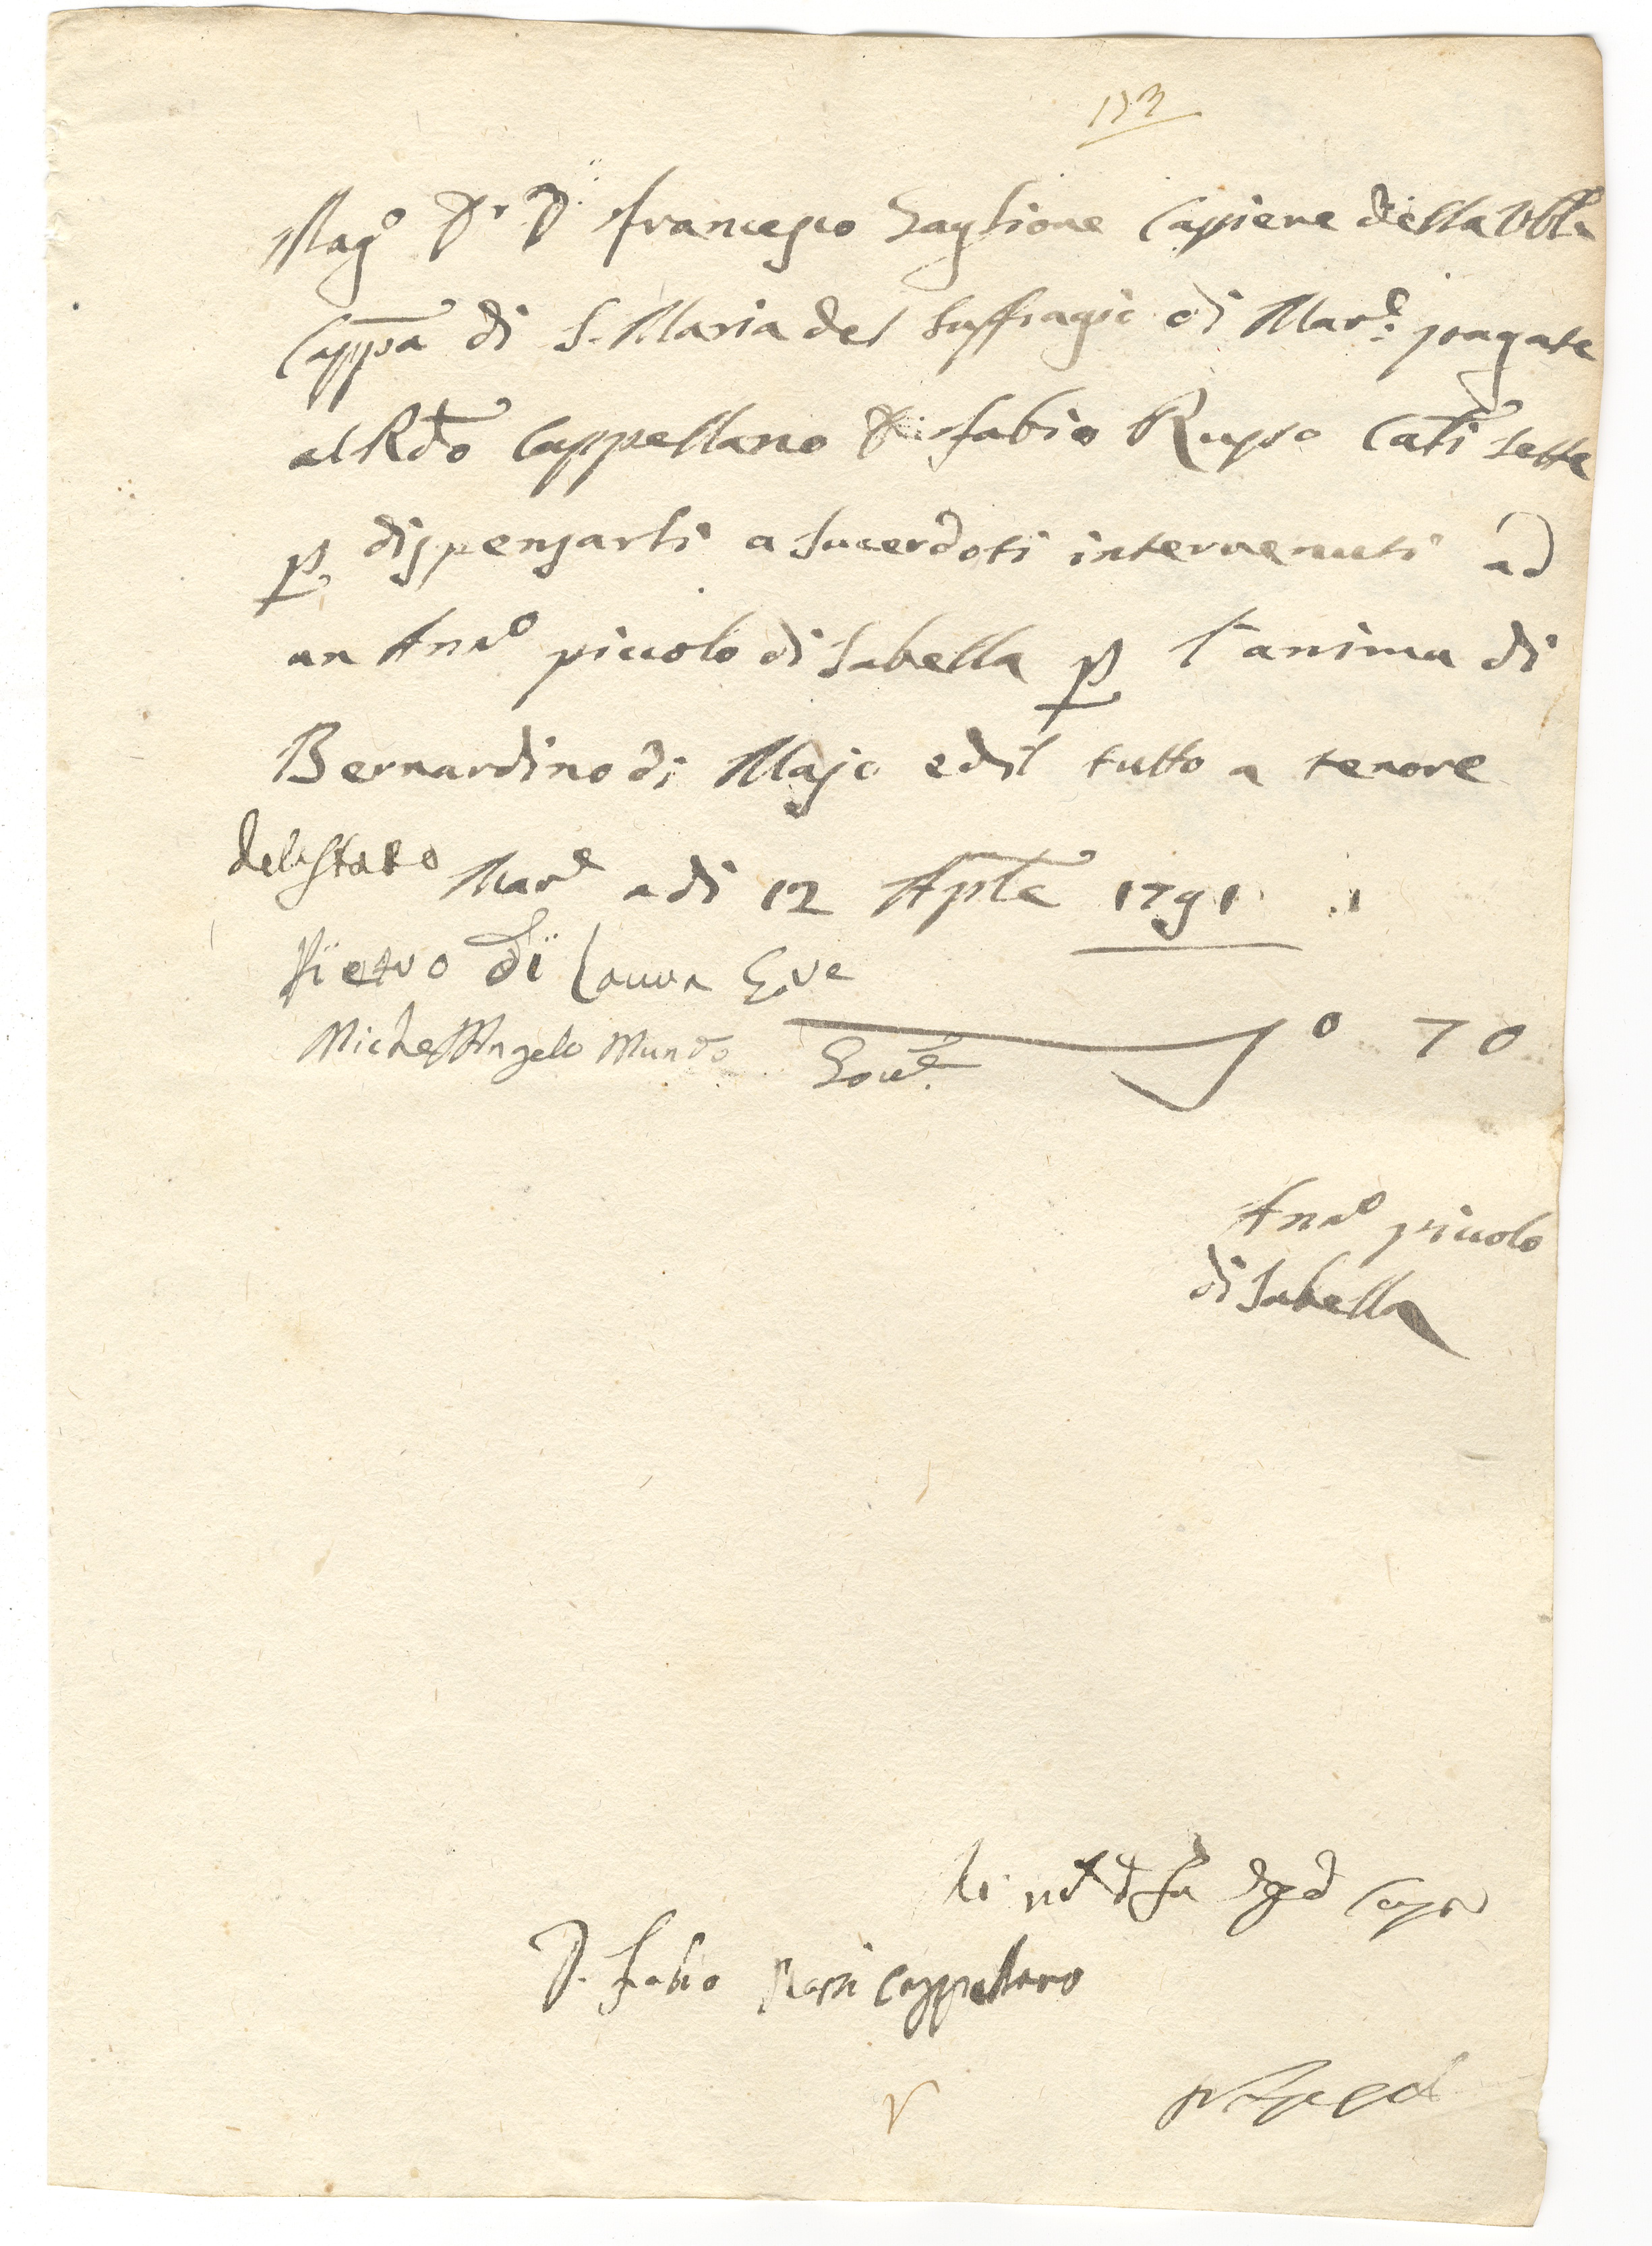 173
Mag.o Dr. D. Francesco Gaglione Cassiere della Vble
Cappa di S. Maria del Suffragio di Mar.d pagate
al Rdo Cappellano D. Fabio Russo Cati sette
p dispensarli a sacerdoti intervenuti ad
un Ann.o piccolo di Sabella p l'anima di
Bernardino di Majo ed il tutto a tenore
del stato Mar.d a di 12 Aple 1791
Pietro di Laura Gove
Michel Angelo Mundo Gove 0 70
Ann.o piccolo
di Sabella
D. Fabio Cappellano